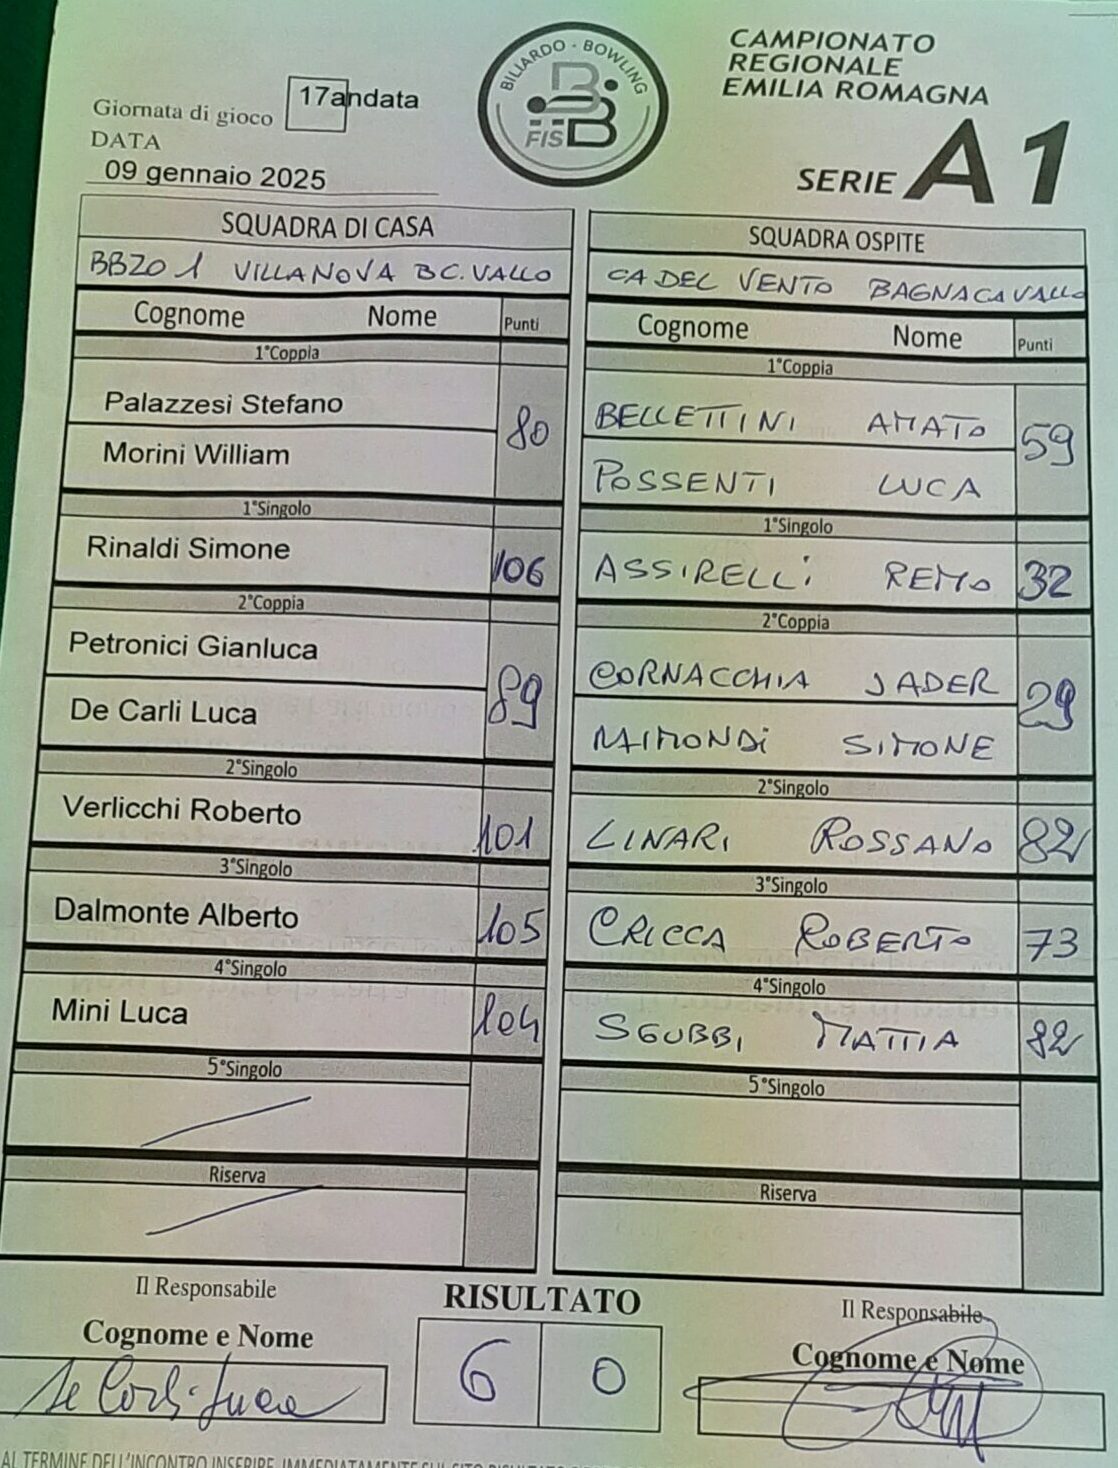 BILIARDO - BOWLING
FISBB
CAMPIONATO
REGIONALE
EMILIA ROMAGNA
SERIE A1
Giornata di gioco 17andata
DATA
09 gennaio 2025
SQUADRA DI CASA
BBZO 1 VILLANOVA BC. VALLO
Cognome Nome Punti
1°Coppia
Palazzesi Stefano
80
Morini William
1°Singolo
Rinaldi Simone 106
2°Coppia
Petronici Gianluca
89
De Carli Luca
2°Singolo
Verlicchi Roberto 101
3°Singolo
Dalmonte Alberto 105
4°Singolo
Mini Luca 104
5°Singolo
Riserva
SQUADRA OSPITE
CA DEL VENTO BAGNACAVALLO
Cognome Nome Punti
1°Coppia
BELLETTINI AMATO
59
POSSENTI LUCA
1°Singolo
ASSIRELLI REMO 32
2°Coppia
CORNACCHIA JADER
29
RAIMONDI SIMONE
2°Singolo
LINARI ROSSANO 82
3°Singolo
CRICCA ROBERTO 73
4°Singolo
SGUBBI MATTIA 82
5°Singolo
Riserva
Il Responsabile
Cognome e Nome
De Carli Luca
RISULTATO
6 0
Il Responsabile
Cognome e Nome
AL TERMINE DELL'INCONTRO INSERIRE IMMEDIATAMENTE SUL SITO